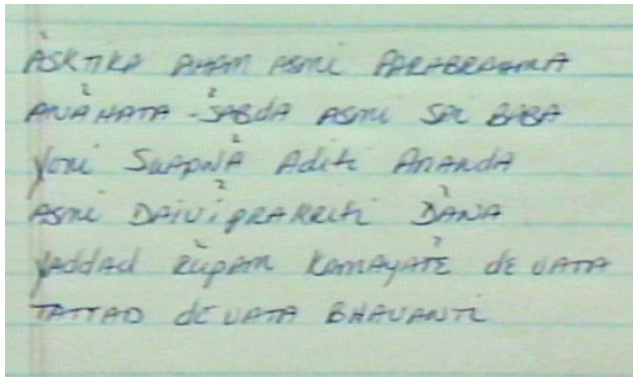 ASKTIKA AHAM ASMI PARABRAHMA
ANAHATA - SABDA ASMI SAI BABA
Yoni SwAPNA Aditi ANANDA
ASMI DAIVIPRAKRITI DANA
YADDAD RUPAM KAMAYATE dEVATA
TATTAD dEVATA BHAVANTI